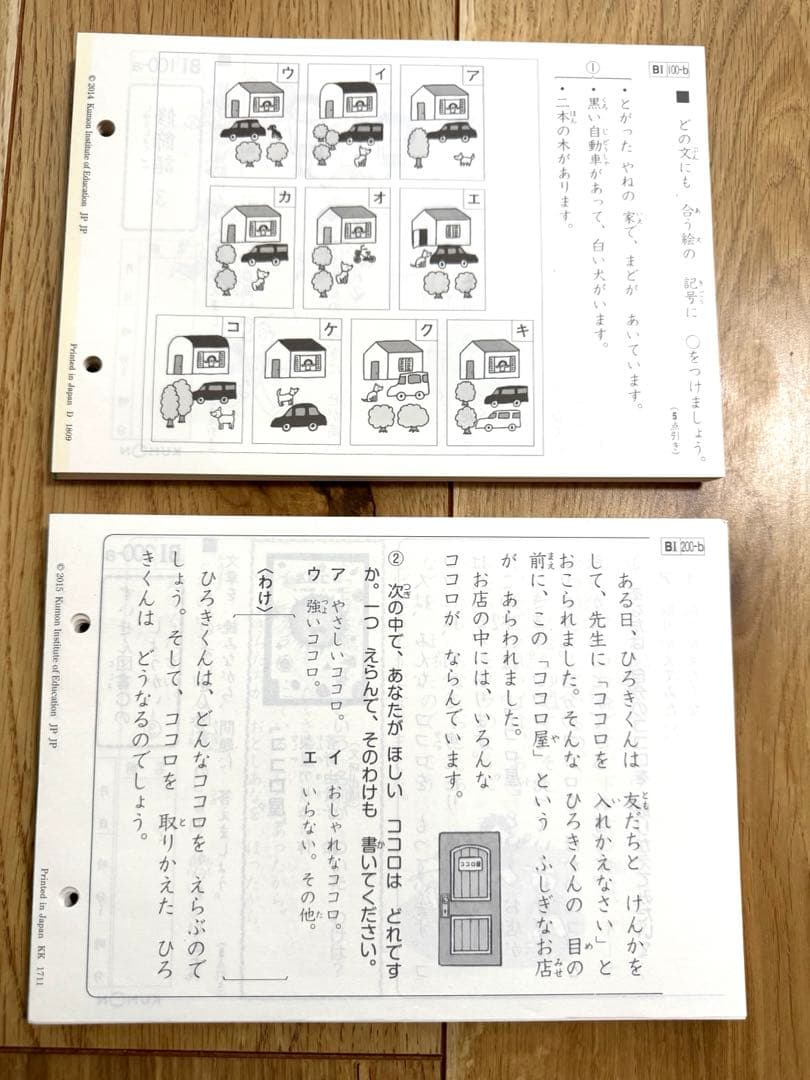 BI 100-b
■ どの文にも 合う絵の 記号に ○をつけましょう。
(5点引き)
①
・とがった やねの 家で、まどが あいています。
・黒い自動車があって、白い犬がいます。
・二本の木があります。
ア
イ
ウ
エ
オ
カ
キ
ク
ケ
コ
© 2014 Kumon Institute of Education JP JP
Printed in Japan D 1809
BI 200-b
ある日、ひろきくんは 友だちと けんかを
して、先生に「ココロを 入れかえなさい」と
おこられました。そんな ひろきくんの 目の
前に、この「ココロ屋」という ふしぎなお店
が あらわれました。
お店の中には、いろんな
ココロが ならんでいます。
ココロ屋
② 次の中で、あなたが ほしい ココロは どれです
か。一つ えらんで、そのわけも 書いてください。
ア やさしいココロ。 イ おしゃれなココロ。
ウ 強いココロ。 エ いらない。その他。
〈わけ〉
ひろきくんは、どんなココロを えらぶので
しょう。そして、ココロを 取りかえた ひろ
きくんは どうなるのでしょう。
© 2015 Kumon Institute of Education JP JP
Printed in Japan KK 1711